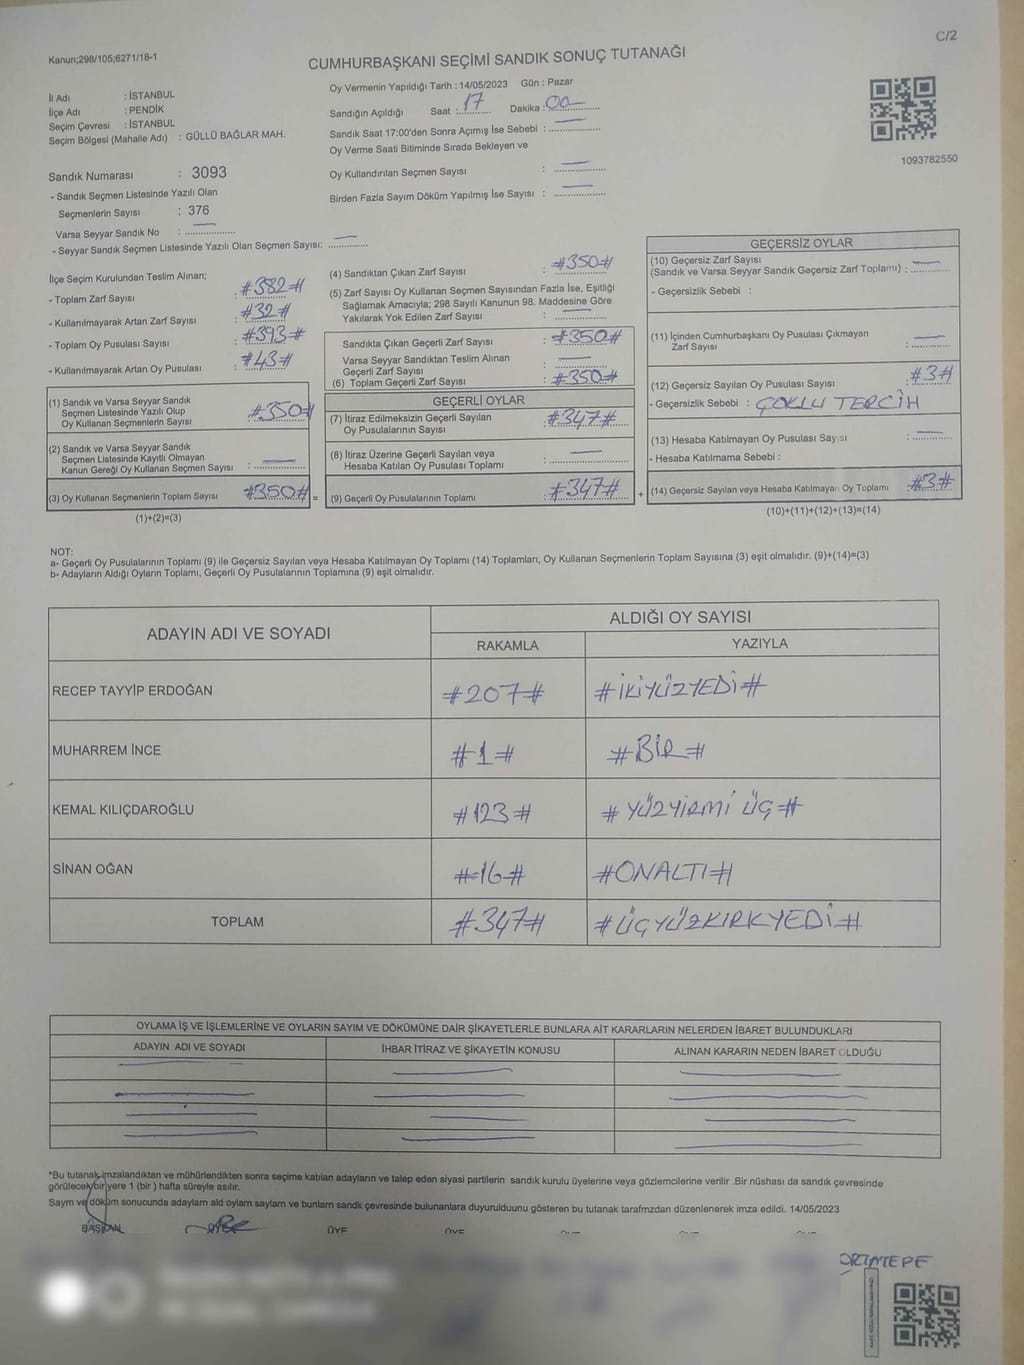 C/2
Kanun;298/105;6271/18-1
CUMHURBAŞKANI SEÇİMİ SANDIK SONUÇ TUTANAĞI
İl Adı : İSTANBUL
İlçe Adı : PENDİK
Seçim Çevresi : İSTANBUL
Seçim Bölgesi (Mahalle Adı) : GÜLLÜ BAĞLAR MAH.
Sandık Numarası : 3093
- Sandık Seçmen Listesinde Yazılı Olan
Seçmenlerin Sayısı : 376
Varsa Seyyar Sandık No :
- Seyyar Sandık Seçmen Listesinde Yazılı Olan Seçmen Sayısı:
Oy Vermenin Yapıldığı Tarih : 14/05/2023 Gün : Pazar
Sandığın Açıldığı Saat : 17 Dakika : 00
Sandık Saat 17:00'den Sonra Açımış İse Sebebi :
Oy Verme Saati Bitiminde Sırada Bekleyen ve
Oy Kullandırılan Seçmen Sayısı :
Birden Fazla Sayım Döküm Yapılmış İse Sayısı :
1093782550
İlçe Seçim Kurulundan Teslim Alınan;
- Toplam Zarf Sayısı : #382#
- Kullanılmayarak Artan Zarf Sayısı : #32#
- Toplam Oy Pusulası Sayısı : #393#
- Kullanılmayarak Artan Oy Pusulası : #43#
(1) Sandık ve Varsa Seyyar Sandık
Seçmen Listesinde Yazılı Olup
Oy Kullanan Seçmenlerin Sayısı : #350#
(2) Sandık ve Varsa Seyyar Sandık
Seçmen Listesinde Kayıtlı Olmayan
Kanun Gereği Oy Kullanan Seçmen Sayısı :
(3) Oy Kullanan Seçmenlerin Toplam Sayısı : #350# =
(1)+(2)=(3)
(4) Sandıktan Çıkan Zarf Sayısı : #350#
(5) Zarf Sayısı Oy Kullanan Seçmen Sayısından Fazla İse, Eşitliği
Sağlamak Amacıyla; 298 Sayılı Kanunun 98. Maddesine Göre
Yakılarak Yok Edilen Zarf Sayısı :
Sandıkta Çıkan Geçerli Zarf Sayısı : #350#
Varsa Seyyar Sandıktan Teslim Alınan
Geçerli Zarf Sayısı :
(6) Toplam Geçerli Zarf Sayısı : #350#
GEÇERLİ OYLAR
(7) İtiraz Edilmeksizin Geçerli Sayılan
Oy Pusulalarının Sayısı : #347#
(8) İtiraz Üzerine Geçerli Sayılan veya
Hesaba Katılan Oy Pusulası Toplamı :
(9) Geçerli Oy Pusulalarının Toplamı : #347# +
GEÇERSİZ OYLAR
(10) Geçersiz Zarf Sayısı
(Sandık ve Varsa Seyyar Sandık Geçersiz Zarf Toplamı) :
- Geçersizlik Sebebi :
(11) İçinden Cumhurbaşkanı Oy Pusulası Çıkmayan
Zarf Sayısı :
(12) Geçersiz Sayılan Oy Pusulası Sayısı : #3#
- Geçersizlik Sebebi : ÇOKLU TERCİH
(13) Hesaba Katılmayan Oy Pusulası Sayısı :
- Hesaba Katılmama Sebebi :
(14) Geçersiz Sayılan veya Hesaba Katılmayan Oy Toplamı : #3#
(10)+(11)+(12)+(13)=(14)
NOT:
a- Geçerli Oy Pusulalarının Toplamı (9) ile Geçersiz Sayılan veya Hesaba Katılmayan Oy Toplamı (14) Toplamları, Oy Kullanan Seçmenlerin Toplam Sayısına (3) eşit olmalıdır. (9)+(14)=(3)
b- Adayların Aldığı Oyların Toplamı, Geçerli Oy Pusulalarının Toplamına (9) eşit olmalıdır.
ADAYIN ADI VE SOYADI
ALDIĞI OY SAYISI
RAKAMLA YAZIYLA
RECEP TAYYİP ERDOĞAN #207# #İKİYÜZYEDİ#
MUHARREM İNCE #1# #BİR#
KEMAL KILIÇDAROĞLU #123# #YÜZYİRMİ ÜÇ#
SİNAN OĞAN #16# #ONALTI#
TOPLAM #347# #ÜÇYÜZKIRKYEDİ#
OYLAMA İŞ VE İŞLEMLERİNE VE OYLARIN SAYIM VE DÖKÜMÜNE DAİR ŞİKAYETLERLE BUNLARA AİT KARARLARIN NELERDEN İBARET BULUNDUKLARI
ADAYIN ADI VE SOYADI İHBAR İTİRAZ VE ŞİKAYETİN KONUSU ALINAN KARARIN NEDEN İBARET OLDUĞU
*Bu tutanak imzalandıktan ve mühürlendikten sonra seçime katılan adayların ve talep eden siyasi partilerin sandık kurulu üyelerine veya gözlemcilerine verilir .Bir nüshası da sandık çevresinde
görülecek bir yere 1 (bir ) hafta süreyle asılır.
Sayım ve döküm sonucunda adayların ald oyların sayların ve bunların sandık çevresinde bulunanlara duyurulduunu gösteren bu tutanak tarafmzdan düzenlenerek imza edildi. 14/05/2023
BAŞKAN ÜYE ÜYE ÜYE
ORTATEPE